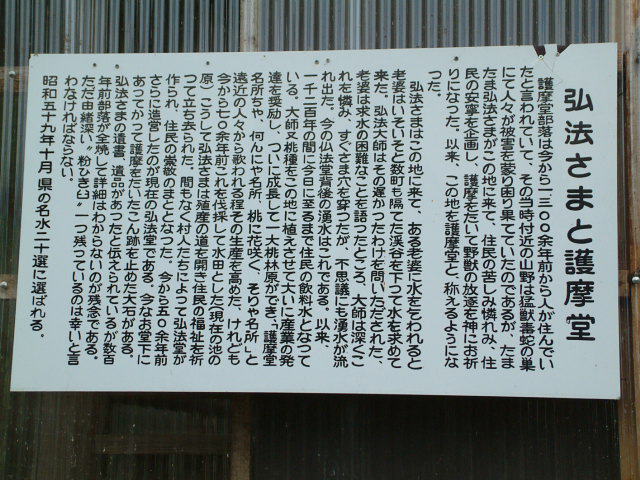 弘法さまと護摩堂
護摩堂部落は今から一三〇〇余年前から人が住んでい
たと言われていて、その当時付近の山野は猛獣毒蛇の巣
にて人々が被害を蒙り困り果てていたのであるが、たま
たま弘法さまがこの地に来て、住民の苦しみ憐れみ、住
民の安寧を企画し、護摩をたいて野獣の放逐を神にお祈
りになった。以来、この地を護摩堂と、称えるようにな
った。
弘法さまはこの地に来て、ある老婆に水を乞われると
老婆はいそいそと数町も隔てた渓谷を下って水を求めて
来た。弘法大師はその遅かったわけを問いただされた、
老婆は求水の困難なことを語ったところ、大師は深くこ
れを憐み、すぐさま穴を穿つたが、不思議にも湧水が流
れ出た。今の仏法堂背後の湧水はこれである。以来、
一千二百年の間に今日に至るまで住民の飲料水となつて
いる。大師の文桃種をこの地に植えさせて大いに産業の発
達を奨励し、ついに成長して一大桃林原ができ、「護摩堂
名所ちや、何んにや名所、桃に花咲く、そりゃ名所」と
遠近の人々から歌われる程その生産を高めた、けれども
今から七〇余年前これを伐採して水田とした(現在の池の
原)こうして弘法さまは殖産の道を開き住民の福祉を祈
つて立ち去られた。間もなく村人たちによつて弘法堂が
作られ、住民の崇敬のまととなつた。今から五〇余年前
さらに造営したのが現在の弘法堂である。今なお堂下に
あつてかつて護摩をたいたこん跡を止めた大石がある。
弘法さまの遺書、遺品があつたと伝えられているが数百
年前部落が全焼して詳細はわからないのが残念である。
ただ由緒深い"粉ひき臼"一つ残っているのは幸いと言
わなければならない。
昭和五十九年十月 県の名水二十選に選ばれる。